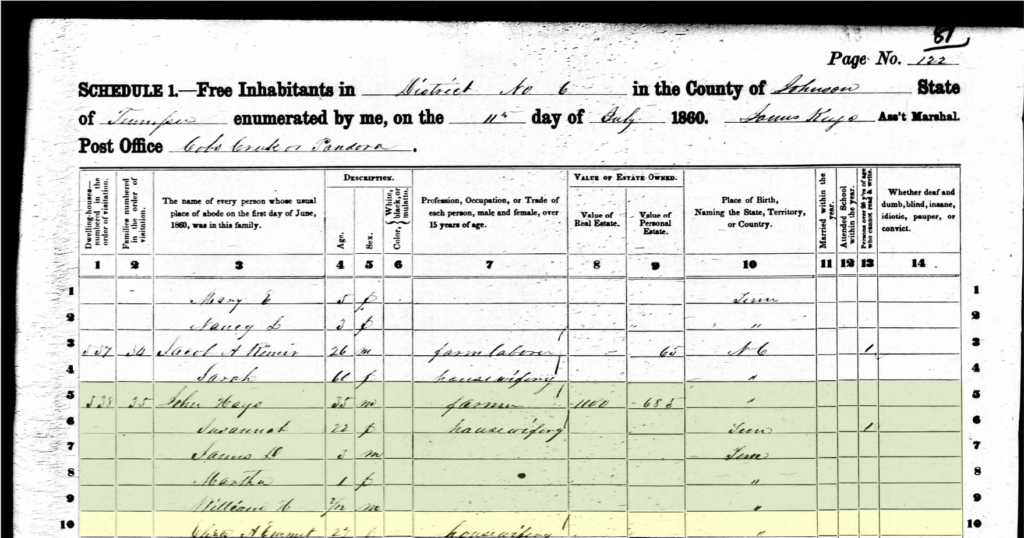 81
Page No. 122
SCHEDULE 1.—Free Inhabitants in District No 6 in the County of Johnson State
of Tennessee enumerated by me, on the 11th day of July 1860. Ass't Marshal.
Post Office Pandora.
DESCRIPTION. VALUE OF ESTATE OWNED.
Dwelling-houses—numbered in the order of visitation. Families numbered in the order of visitation. The name of every person whose usual place of abode on the first day of June, 1860, was in this family. Age. Sex. Color, White, black, or mulatto. Profession, Occupation, or Trade of each person, male and female, over 15 years of age. Value of Real Estate. Value of Personal Estate. Place of Birth, Naming the State, Territory, or Country. Married within the year. Attended School within the year. Persons over 20 y'rs of age who cannot read & write. Whether deaf and dumb, blind, insane, idiotic, pauper, or convict.
1 2 3 4 5 6 7 8 9 10 11 12 13 14
1 Mary E 5 f Tenn 1
2 Nancy D 3 f " 2
3 537 34 Jacob A 26 m farm laborer 65 N C 1 3
4 Sarah 60 f housewifing " 4
5 538 35 John Hays 35 m farmer 1100 685 " 5
6 Susannah 22 f housewifing Tenn 1 6
7 James D 3 m Tenn 7
8 Martha 1 f " 8
9 William H 2/12 m " 9
10 A Emmit 22 f housewifing " 10